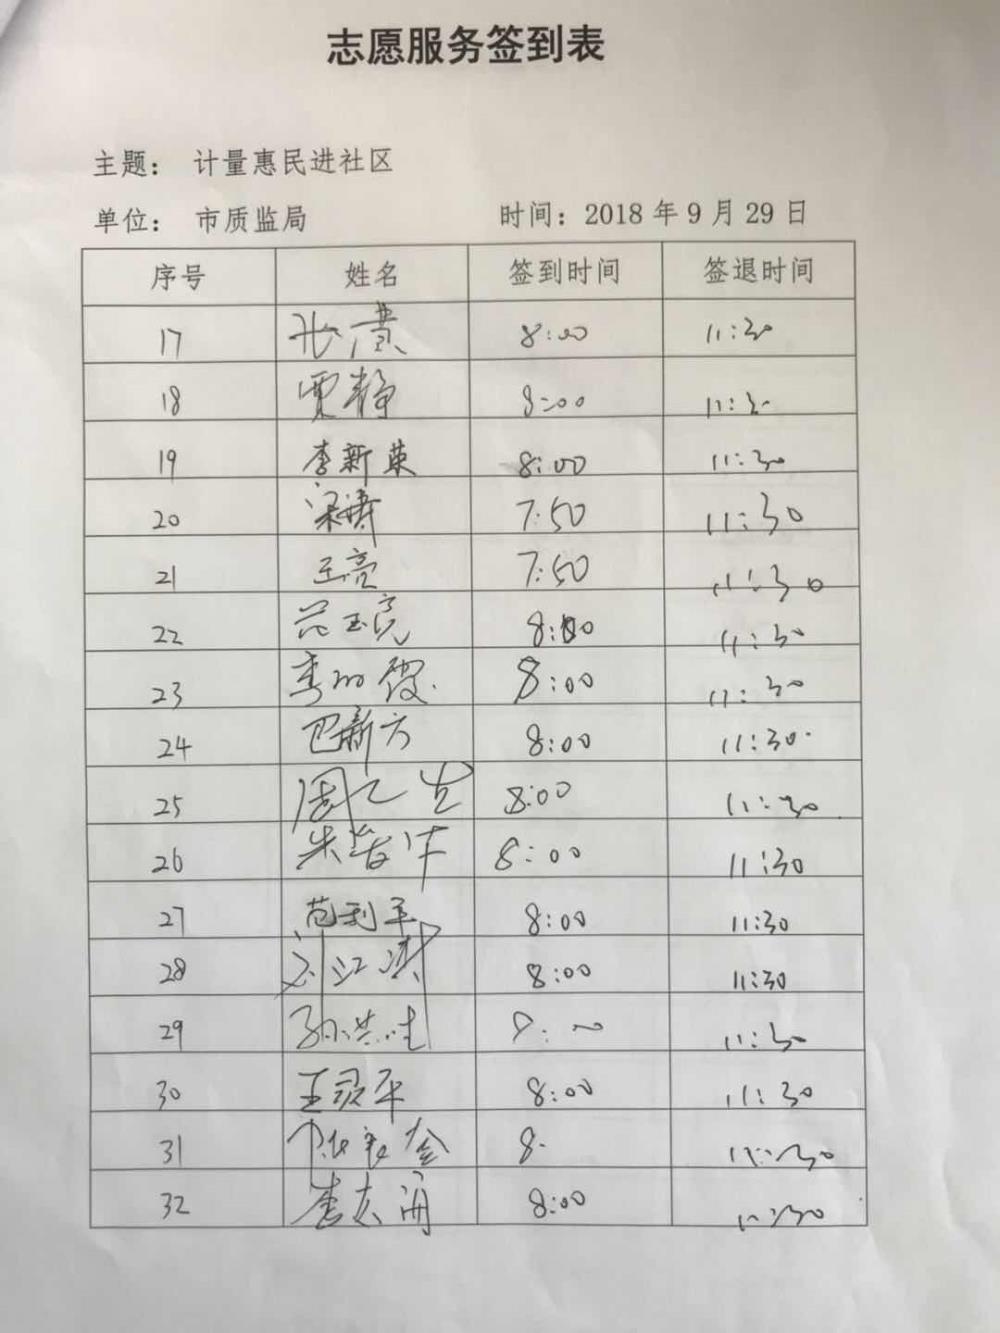 志愿服务签到表
主题： 计量惠民进社区
单位： 市质监局 时间：2018年9月29日
序号 姓名 签到时间 签退时间
17 8:00 11:30
18 贾静 8:00 11:30
19 李新英 8:00 11:30
20 梁涛 7:50 11:30
21 王亮 7:50 11:30
22 范玉亮 8:00 11:30
23 8:00 11:30
24 巴新方 8:00 11:30
25 8:00 11:30
26 朱 8:00 11:30
27 范利平 8:00 11:30
28 刘江洪 8:00 11:30
29 孙洪 8:00 11:30
30 王 平 8:00 11:30
31 8. 11:30
32 李 8:00 11:30